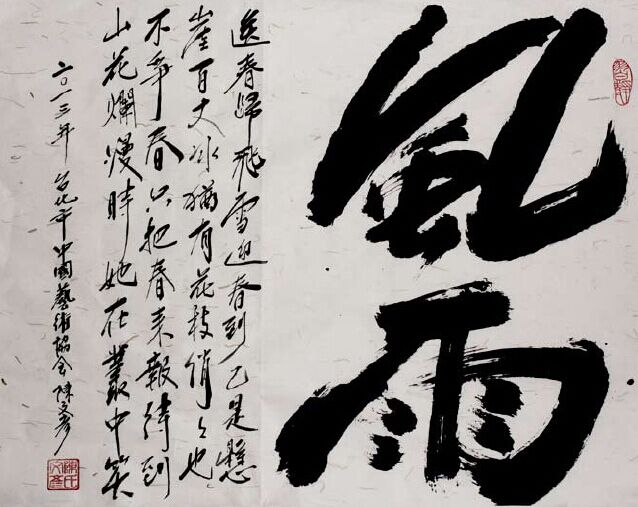 風雨
送春歸飛雪迎春到已是懸
崖百丈冰猶有花枝俏々也
不爭春只把春來報待到
山花爛熳時她在叢中笑
二〇一三年 台北市中國藝術協會 陳文彥